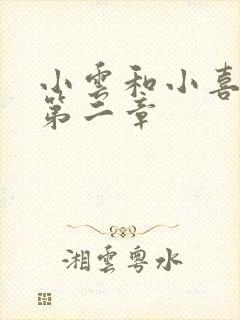 小雲和小喜
第二章
湘雲粵水